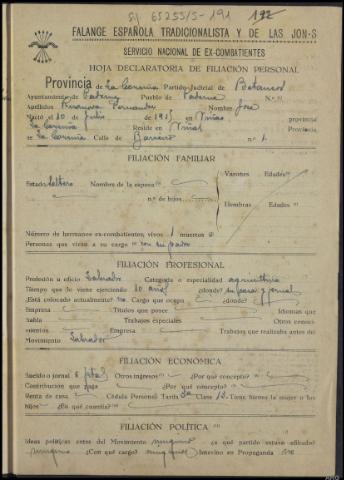 192
FALANGE ESPAÑOLA TRADICIONALISTA Y DE LAS JON-S
SERVICIO NACIONAL DE EX-COMBATIENTES
HOJA DECLARATORIA DE FILIACIÓN PERSONAL
Provincia de La Coruña Partido Judicial de Betanzos
Ayuntamiento de Paderne Pueblo de Paderne N.º
Apellidos Fernandez Nombre José
Nació el 10 de Julio de en Viñas provincia
La Coruña Reside en Viñas Provincia
La Coruña Calle de n.º 1
FILIACIÓN FAMILIAR
Estado soltero Nombre de la esposa
Varones Edades
n.º de hijos
Hembras Edades
Número de hermanos ex-combatientes, vivos 1 muertos 0
Personas que viven a su cargo con su padre
FILIACIÓN PROFESIONAL
Profesión u oficio Labrador Categoría o especialidad agricultura
Tiempo que lo viene ejerciendo 10 años ¿dónde? en casa y
¿Está colocado actualmente? no Cargo que ocupa ¿dónde?
Empresa Títulos que posee Idiomas que
sabe Trabajos especiales Otros conoci-
mientos Empresa Trabajos que realizaba antes del
Movimiento Labrador
FILIACIÓN ECONÓMICA
Sueldo o jornal 6 ptas Otros ingresos ¿Por qué concepto?
Contribución que paga ¿Por qué concepto?
Renta de casa Cédula Personal Tarifa 3a Clase 13 Tiene bienes la mujer o los
hijos ¿En qué cuantía?
FILIACIÓN POLÍTICA
Ideas políticas antes del Movimiento ninguno ¿a qué partido estuvo afiliado?
ninguno ¿Con qué cargo? ninguno Intervino en Propaganda no